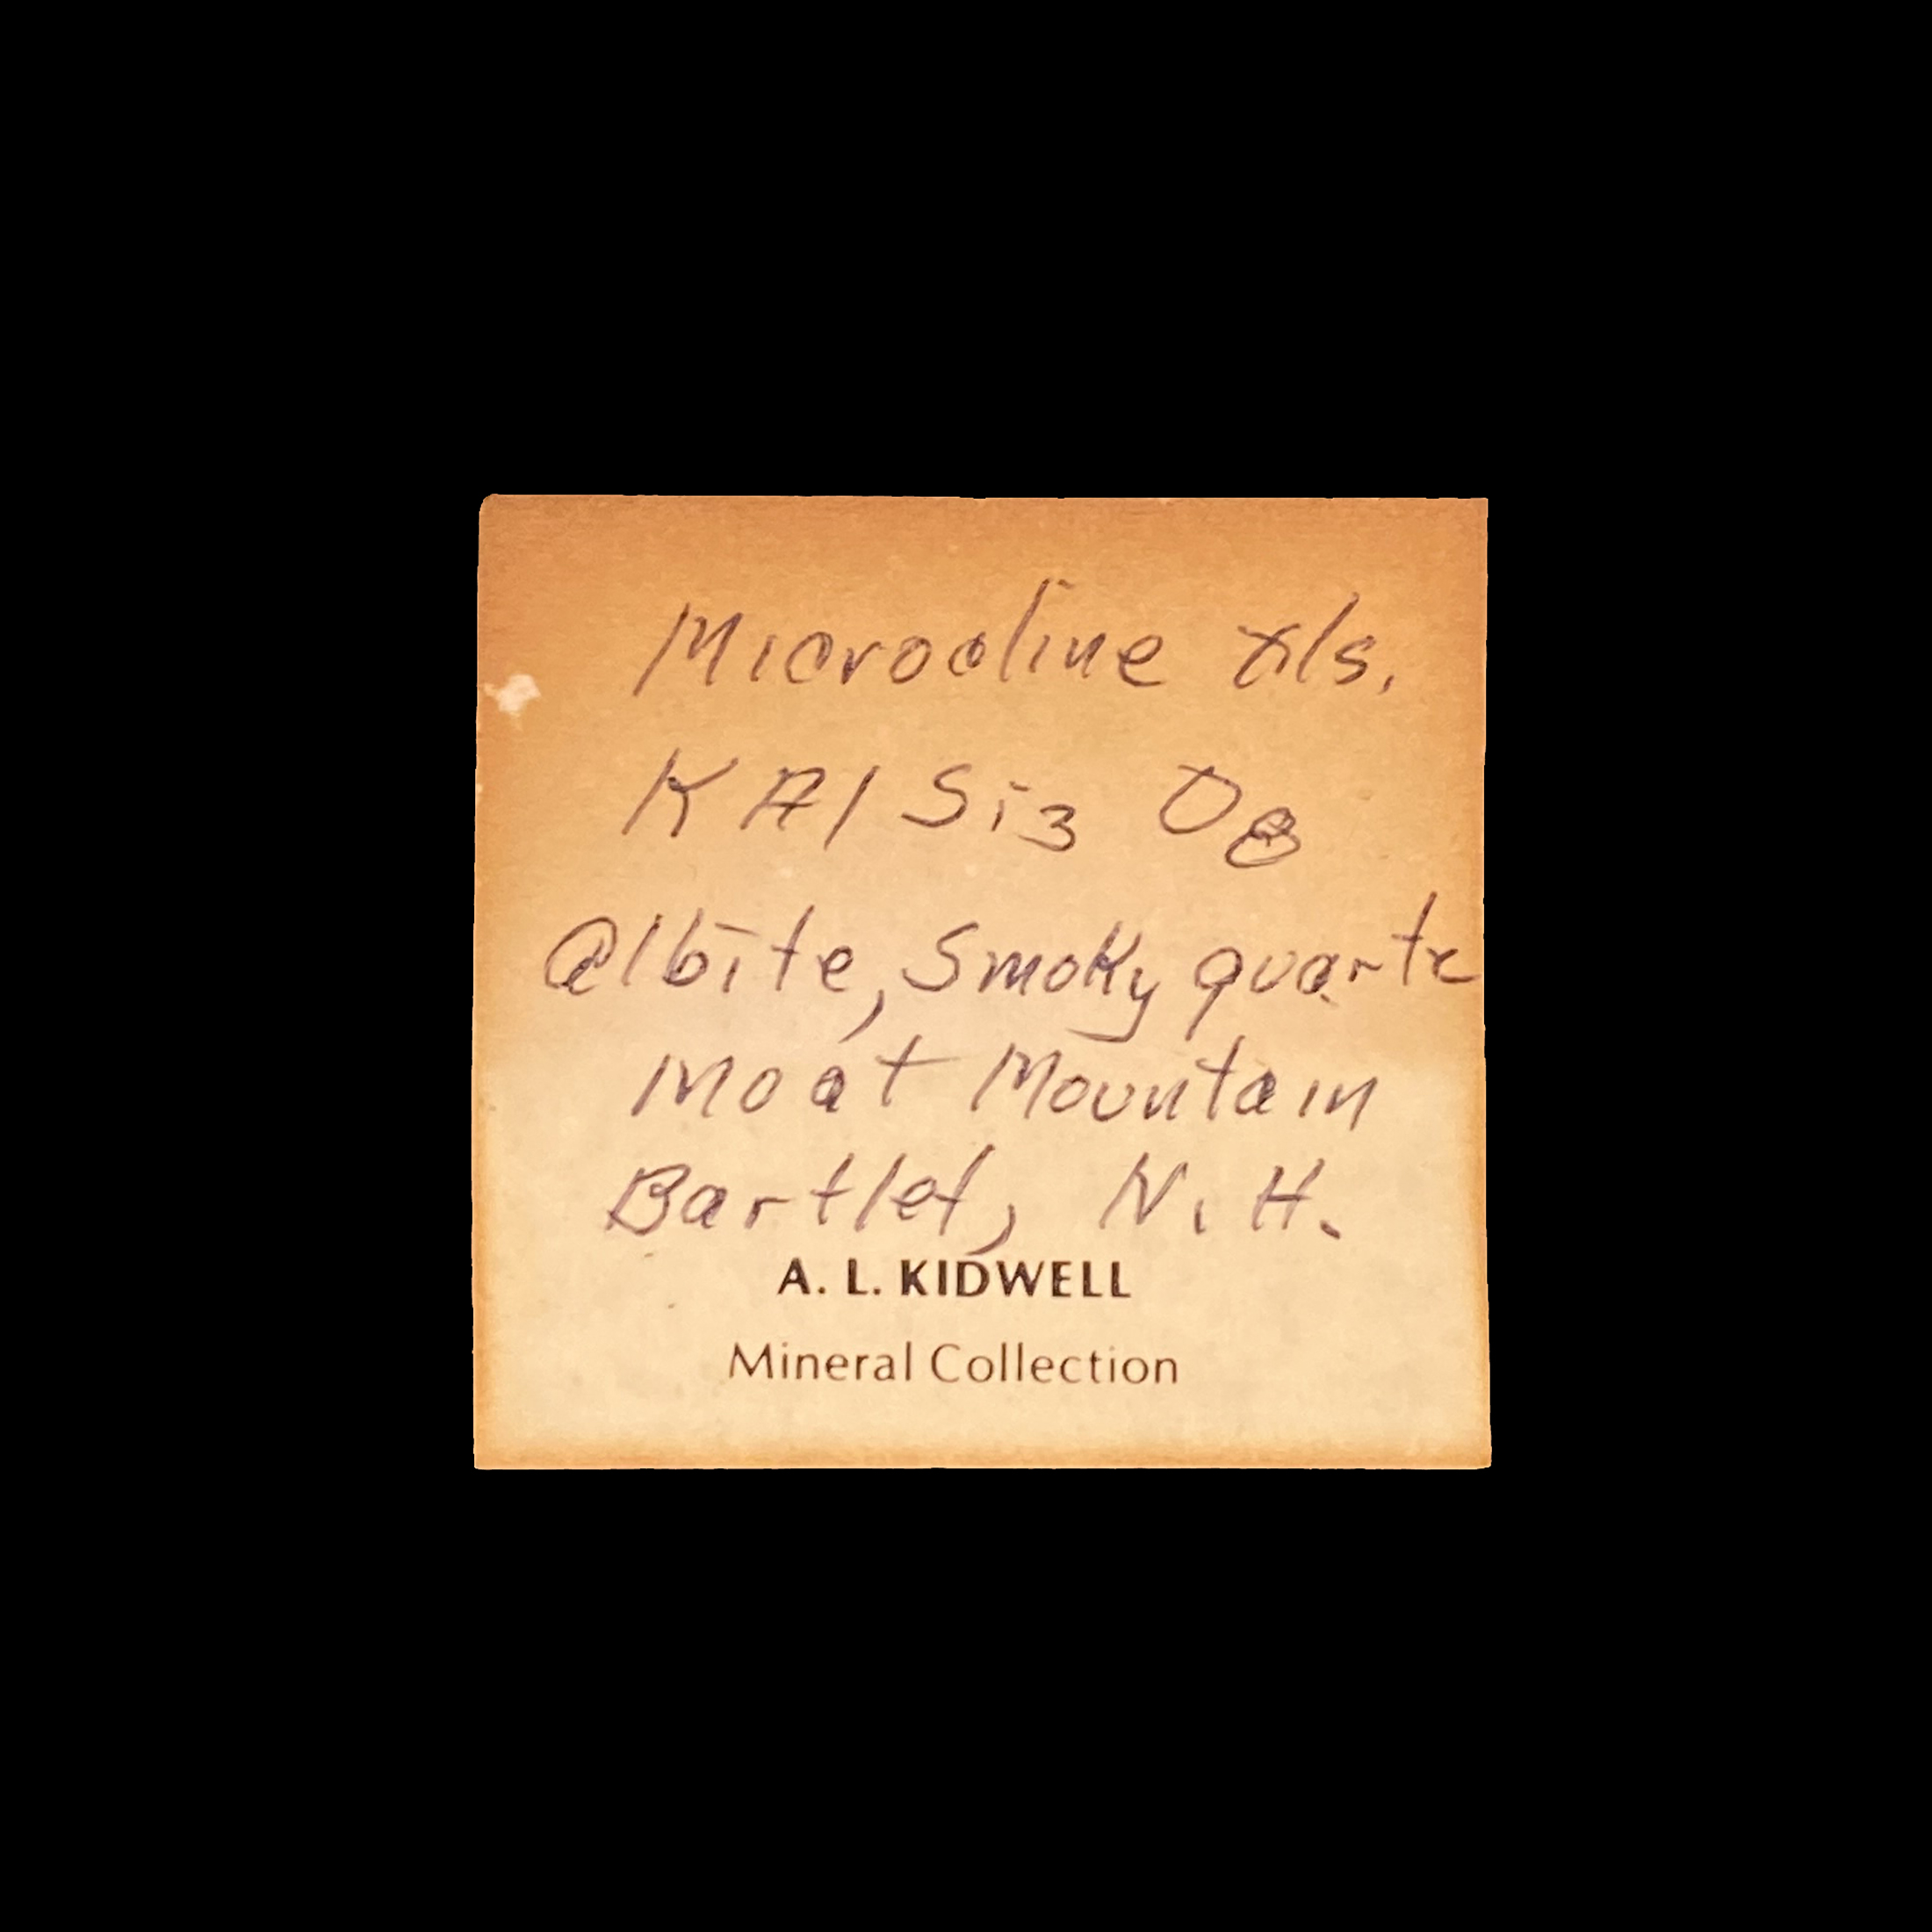 Microcline xls.
KAlSi3 O8
Albite, Smoky quartz
Moat Mountain
Bartlet, N.H.
A. L. KIDWELL
Mineral Collection